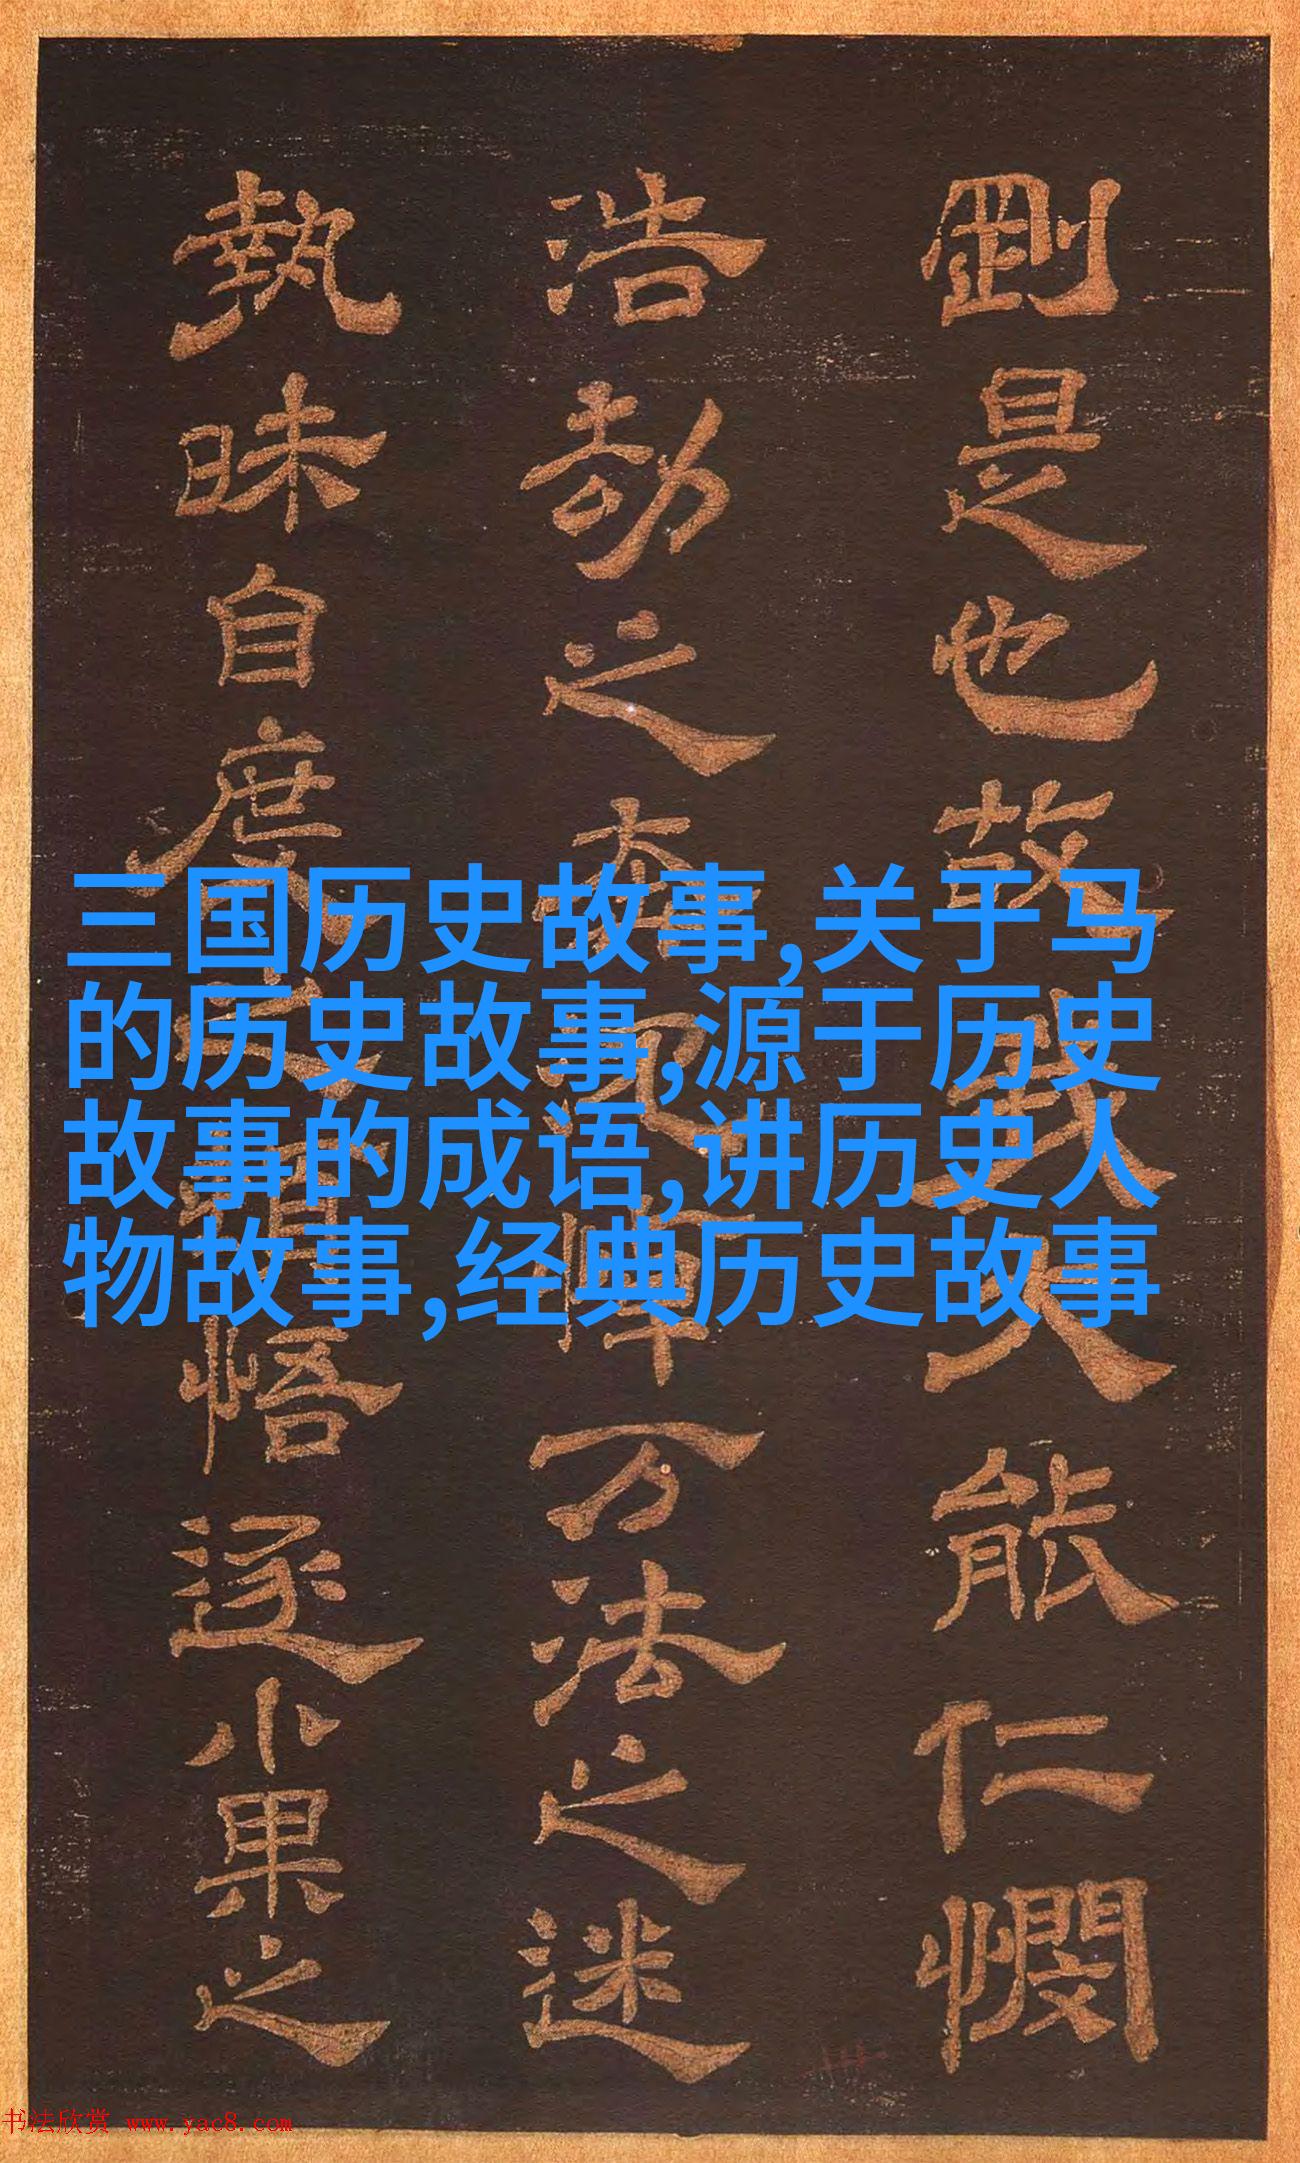 三国历史故事,关于马
的历史故事,源于历史
故事的成语,讲历史人
物故事,经典历史故事
剛是也故我大能仁憫
浩劫之万法之迷
執昧自度悟逐小果之
书法欣赏 www.yac8.com